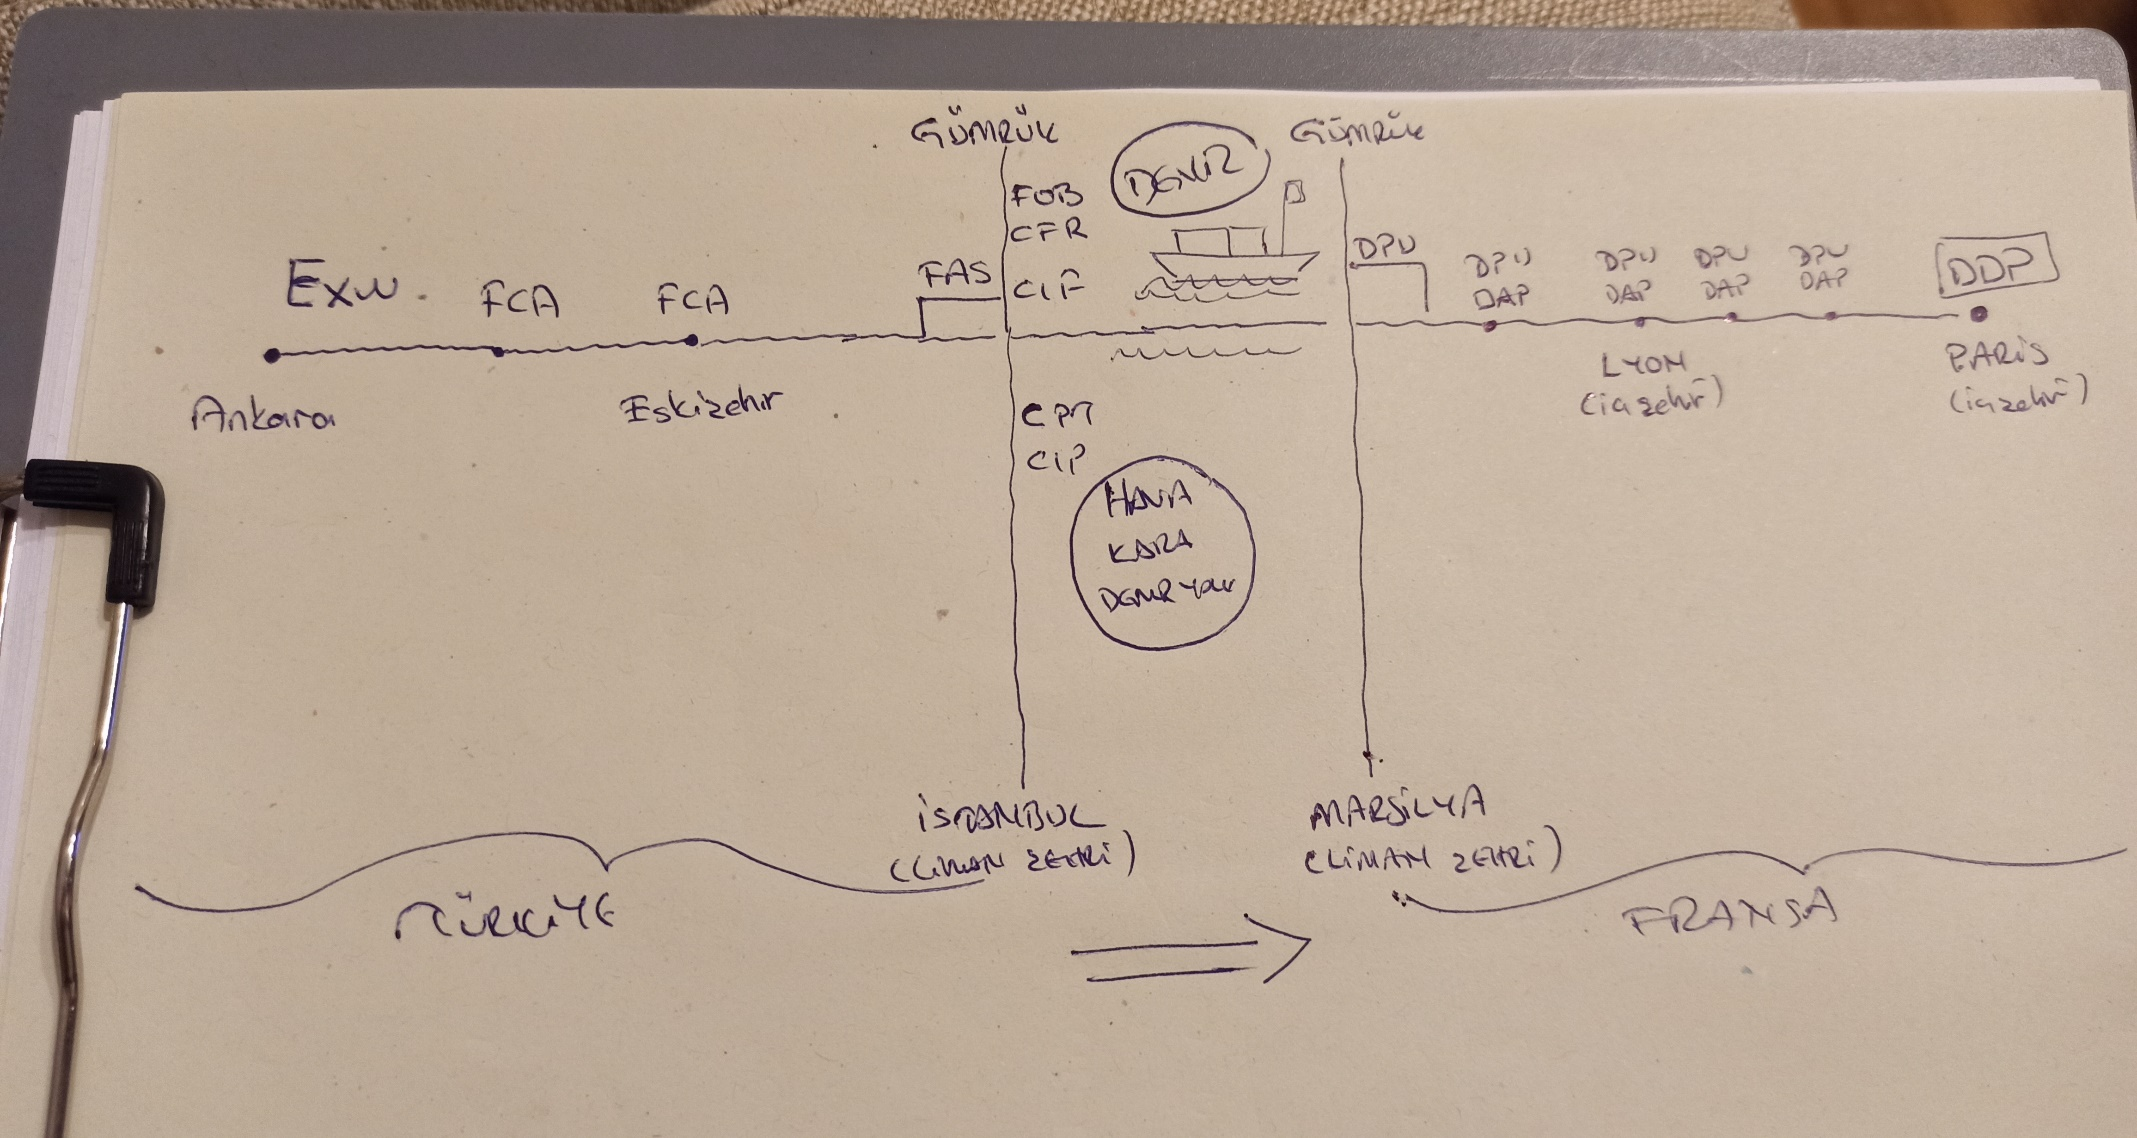 GÜMRÜK
GÜMRÜK
DENİZ
FOB
CFR
CIF
FAS
EXW
FCA
FCA
DPU
DPU
DAP
DPU
DAP
DPU
DAP
DPU
DAP
DDP
Ankara
Eskişehir
LYON
(iç şehir)
PARİS
(iç şehir)
CPT
CIP
HAVA
KARA
DEMİRYOLU
İSTANBUL
(LİMAN ŞEHRİ)
MARSİLYA
(LİMAN ŞEHRİ)
TÜRKİYE
FRANSA